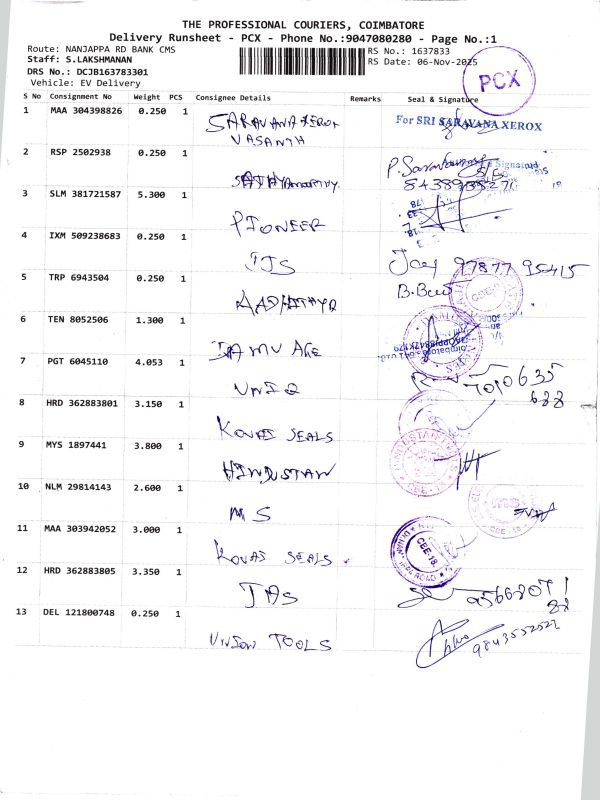 THE PROFESSIONAL COURIERS, COIMBATORE
Delivery Runsheet - PCX - Phone No.:9047080280 - Page No.:1
Route: NANJAPPA RD BANK CMS
RS No.: 1637833
Staff: S.LAKSHMANAN
RS Date: 06-Nov-2025
DRS No.: DCJB163783301
PCX
Vehicle: EV Delivery
S No Consignment No Weight PCS Consignee Details Remarks Seal & Signature
1 MAA 304398826 0.250 1 SARAVANA XEROX For SRI SARAVANA XEROX
VASANTH
2 RSP 2502938 0.250 1
SATHYAMOORTHY
3 SLM 381721587 5.300 1
PIONEER
4 IXM 509238683 0.250 1
TJS 97877 95415
5 TRP 6943504 0.250 1
6 TEN 8052506 1.300 1
7 PGT 6045110 4.053 1
UNIQ
8 HRD 362883801 3.150 1
KOVAI SEALS
9 MYS 1897441 3.800 1
HINDUSTAN
10 NLM 29814143 2.600 1
MS
11 MAA 303942052 3.000 1
CBE-18
KOVAI SEALS
12 HRD 362883805 3.350 1
13 DEL 121800748 0.250 1
UNION TOOLS